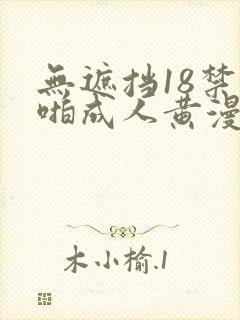 無遮挡18禁
啪成人黄漫
木小榆.1